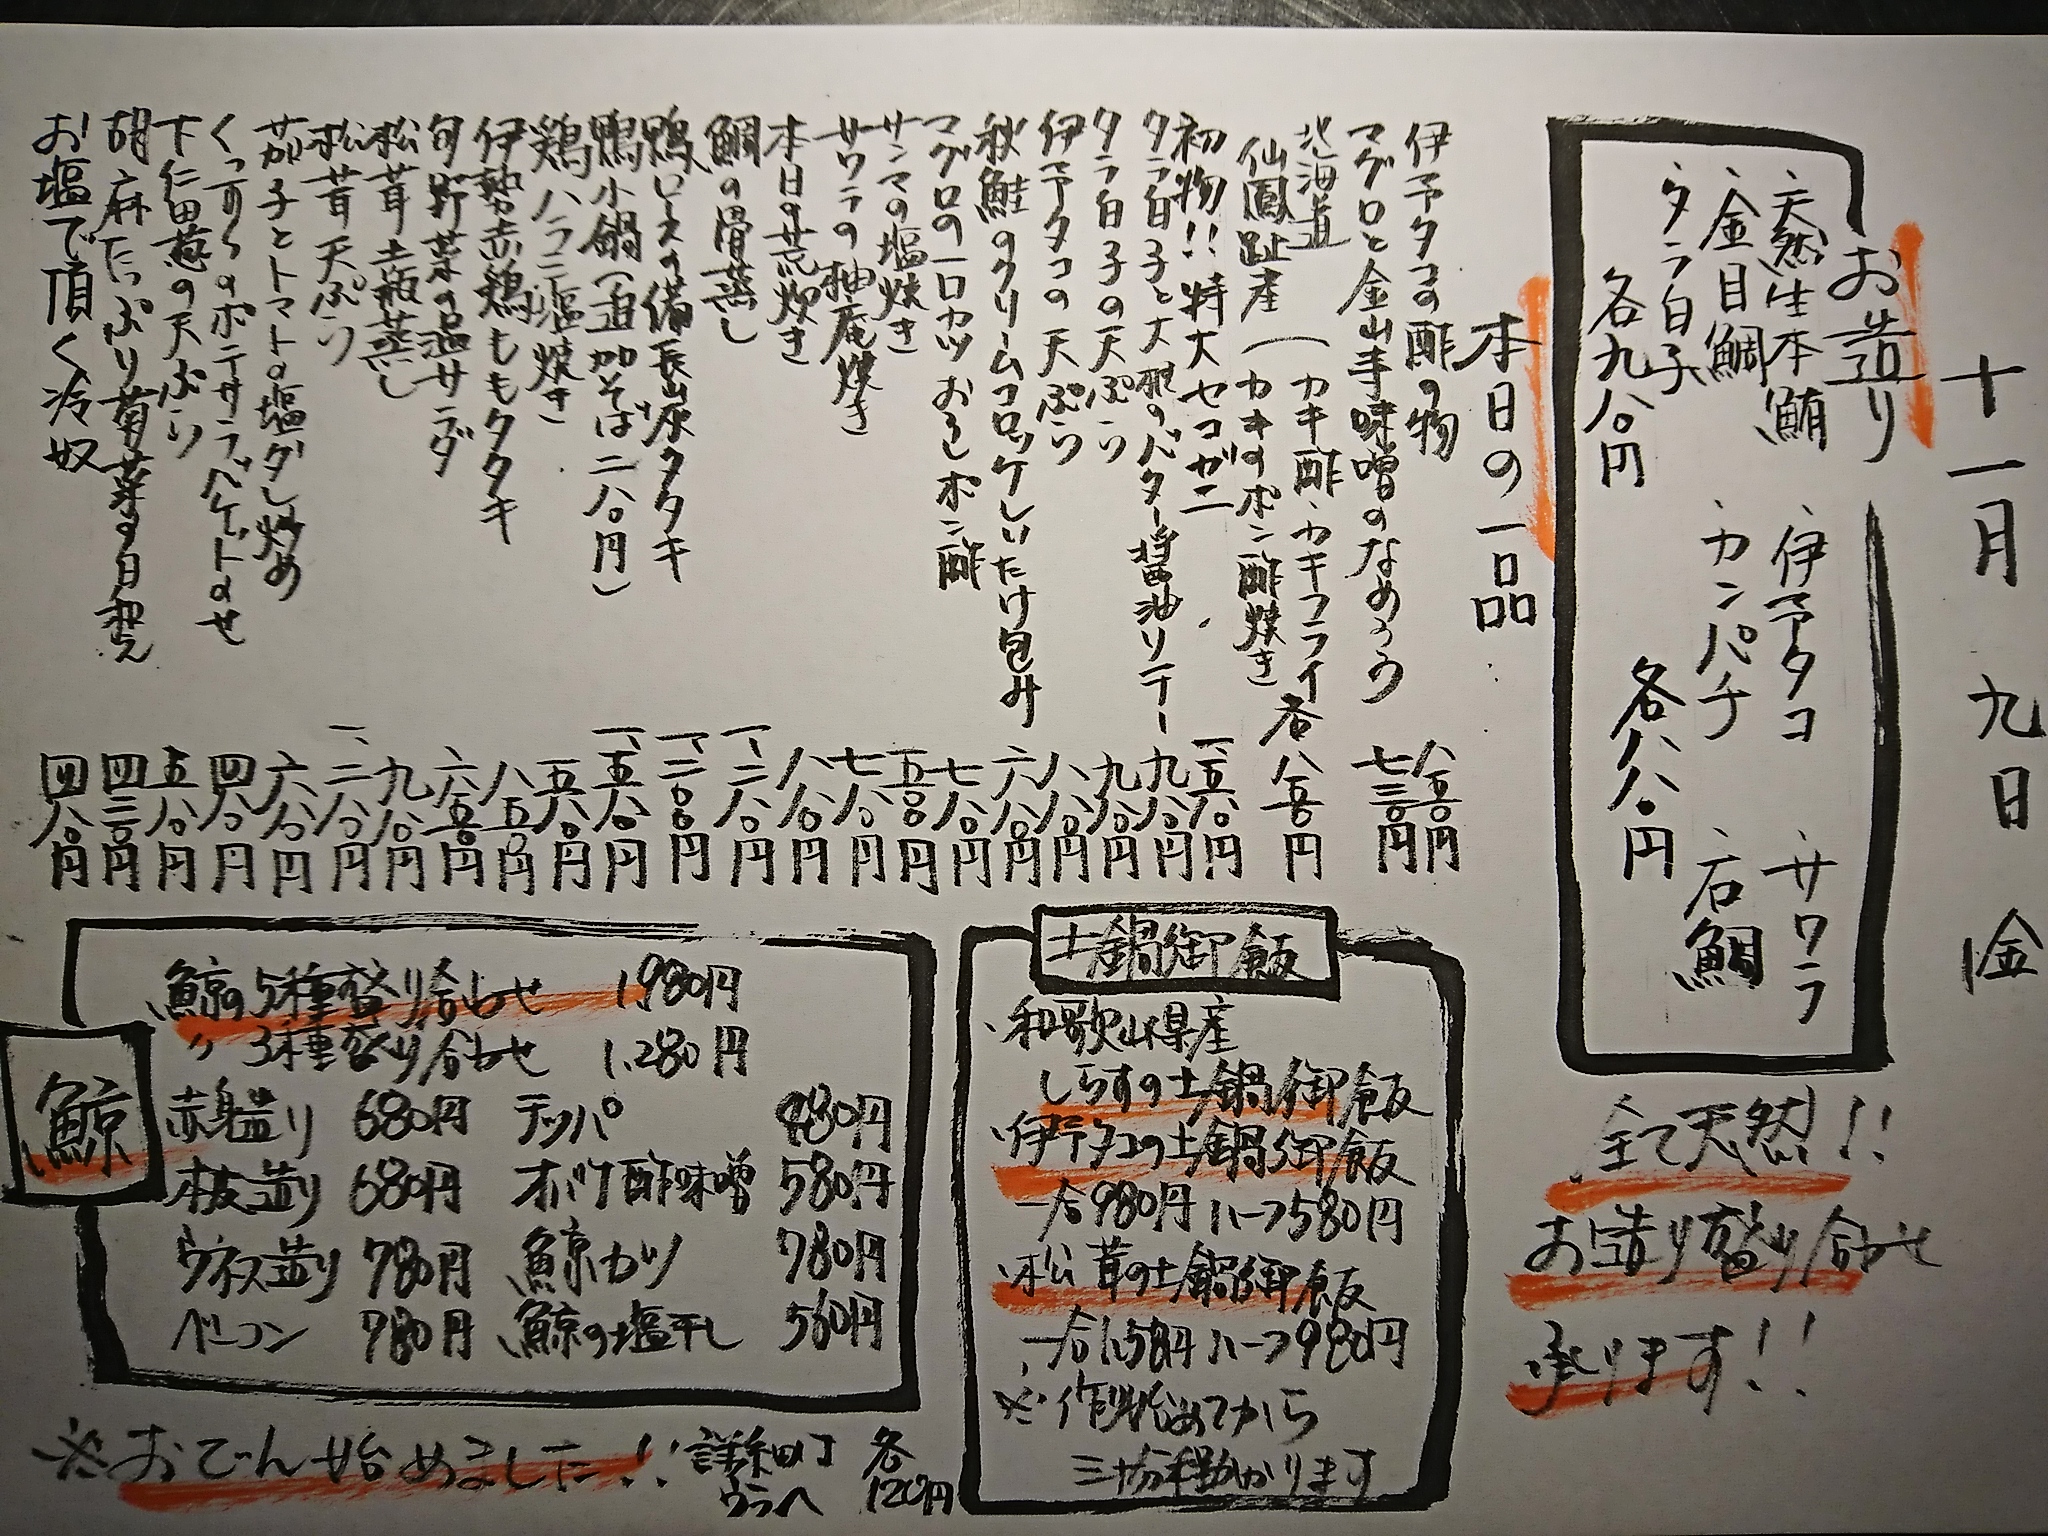 十一月九日金
お造り
・天然生本鮪 ・伊予タコ ・サワラ
・金目鯛 ・カンパチ ・石鯛
・タラ白子
各九八〇円 各八八〇円
全て天然!!
お造り盛り合わせ
承ります!!
本日の一品
伊予タコの酢の物 八五〇円
マグロと金山寺味噌のなめろう 七三〇円
北海道 (カキ酢・カキフライ 各八五〇円
仙鳳趾産 (カキのポン酢焼き
初物!!特大セコガニ 一、五八〇円
タラ白子と大根のバター醤油ソテー 九八〇円
タラ白子の天ぷら 九八〇円
伊予タコの天ぷら 八八〇円
秋鮭のクリームコロッケしいたけ包み 六八〇円
マグロの一口カツおろしポン酢 七八〇円
サンマの塩焼き 五八〇円
サワラの柚庵焼き 七八〇円
本日の荒炊き 八八〇円
鯛の骨蒸し 一、二八〇円
鴨ロースの備長山原タタキ 一、二〇〇円
鴨小鍋(追加そば二八〇円) 一、五八〇円
鶏ハラミ塩焼き 五八〇円
伊勢赤鶏ももタタキ 八五〇円
旬野菜の温サラダ 六五〇円
松茸土瓶蒸し 九八〇円
松茸天ぷら 一、二八〇円
茄子とトマトの塩ダレ炒め 六八〇円
くつろぎのポテサラバケットのせ 四八〇円
下仁田葱の天ぷら 五八〇円
胡麻たっぷり菊菜の白和え 四三〇円
お塩で頂く冷奴 四八〇円
土鍋御飯
・和歌山県産
しらすの土鍋御飯
・伊予タコの土鍋御飯
一合980円ハーフ580円
・松茸の土鍋御飯
一合1,580円ハーフ980円
※作り始めてから
三十分程掛かります
鯨
鯨の5種盛り合わせ 1,980円
〃 3種盛り合わせ 1,280円
赤身造り 680円 テッパ 480円
本皮造り 680円 オバケ酢味噌 580円
ウネス造り 780円 鯨カツ 780円
ベーコン 780円 鯨の塩干し 560円
※おでん始めました!! 詳細は 各
ウラへ 120円